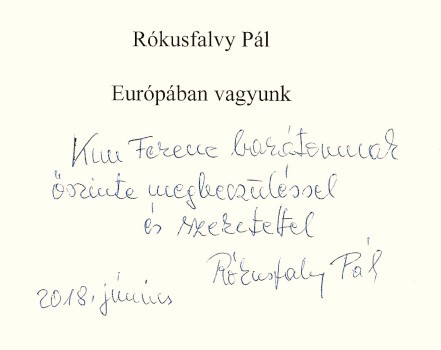 Rókusfalvy Pál
Európában vagyunk
Kun Ferenc barátomnak
őszinte megbecsüléssel
és szeretettel
Rókusfalvy Pál
2018. június